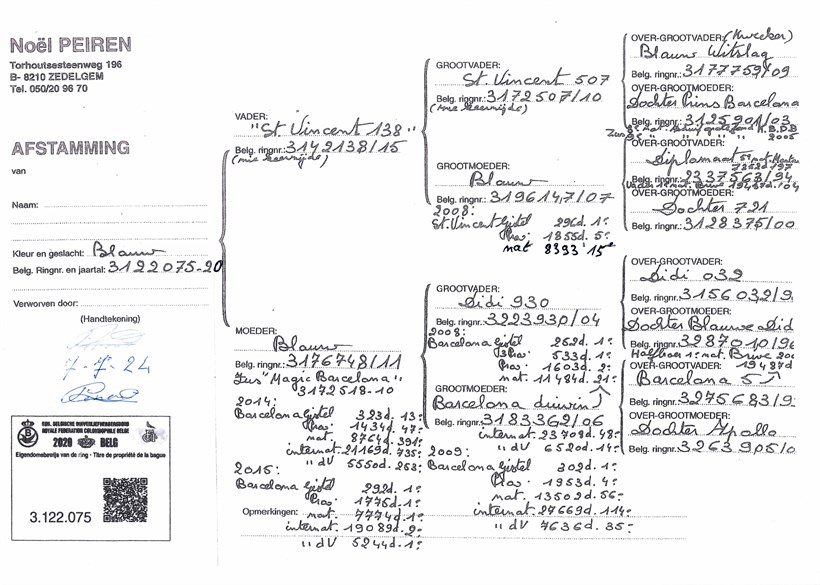 Noël PEIREN
Torhoutsesteenweg 196
B- 8210 ZEDELGEM
Tel. 050/20 96 70
AFSTAMMING
van
Naam:
Kleur en geslacht: Blauw
Belg. Ringnr. en jaartal: 3122075-20
Verworven door:
(Handtekening)
7-7-24
KON. BELGISCHE DUIVENLIEFHEBBERSBOND
ROYALE FEDERATION COLOMBOPHILE BELGE
2020 BELG
Eigendomsbewijs van de ring - Titre de propriété de la bague
3.122.075
VADER:
"St. Vincent 138"
Belg. ringnr.: 3142138/15
MOEDER:
Blauw
Belg. ringnr.: 3176748/11
Zus "Magic Barcelona"
3172518-10
2014:
Barcelona Gistel 323d. 13e
Prov. 1434d. 47e
nat. 8764d. 391e
internat. 21169d. 735e
" dV 5550d. 253e
2015:
Barcelona Gistel 292d. 1e
Prov. 1775d. 1e
Opmerkingen: nat. 7774d. 1e
internat. 19089d. 2e
" dV 5244d. 1e
GROOTVADER:
St. Vincent 507
Belg. ringnr.: 3172507/10
GROOTMOEDER:
Blauw
Belg. ringnr.: 3196147/07
2008:
St. Vincent Gistel 296d. 1e
Prov. 1855d. 5e
nat 8393 15e
GROOTVADER:
Didi 930
Belg. ringnr.: 3223930/04
2008:
Barcelona Gistel 262d. 1e
533d. 1e
Prov. 1603d. 2e
nat. 11484d. 21e
GROOTMOEDER:
Barcelona duivin
Belg. ringnr.: 3183362/06
internat. 23708d. 48e
2009: " dV 6520d. 14e
Barcelona Gistel 302d. 1e
Prov. 1953d. 4e
nat. 13502d. 56e
internat. 27669d. 114e
" dV 7636d. 35e
OVER-GROOTVADER: (Kweker)
Blauw Witslag
Belg. ringnr.: 3177759/09
OVER-GROOTMOEDER:
Dochter Prins Barcelona
Belg. ringnr.: 3125901/03
K.B.D.B
2005
OVER-GROOTVADER:
Diplomaat
Belg. ringnr.: 2337563/94
OVER-GROOTMOEDER:
Dochter 721
Belg. ringnr.: 3128375/00
OVER-GROOTVADER:
Didi 032
Belg. ringnr.: 3156032/9
OVER-GROOTMOEDER:
Dochter Blauwe Did
Belg. ringnr.: 3287010/96
Halfboer 1e nat. Brive 200
OVER-GROOTVADER: 19487d
Barcelona 5
Belg. ringnr.: 3275683/9
OVER-GROOTMOEDER:
Dochter Apollo
Belg. ringnr.: 3263905/0